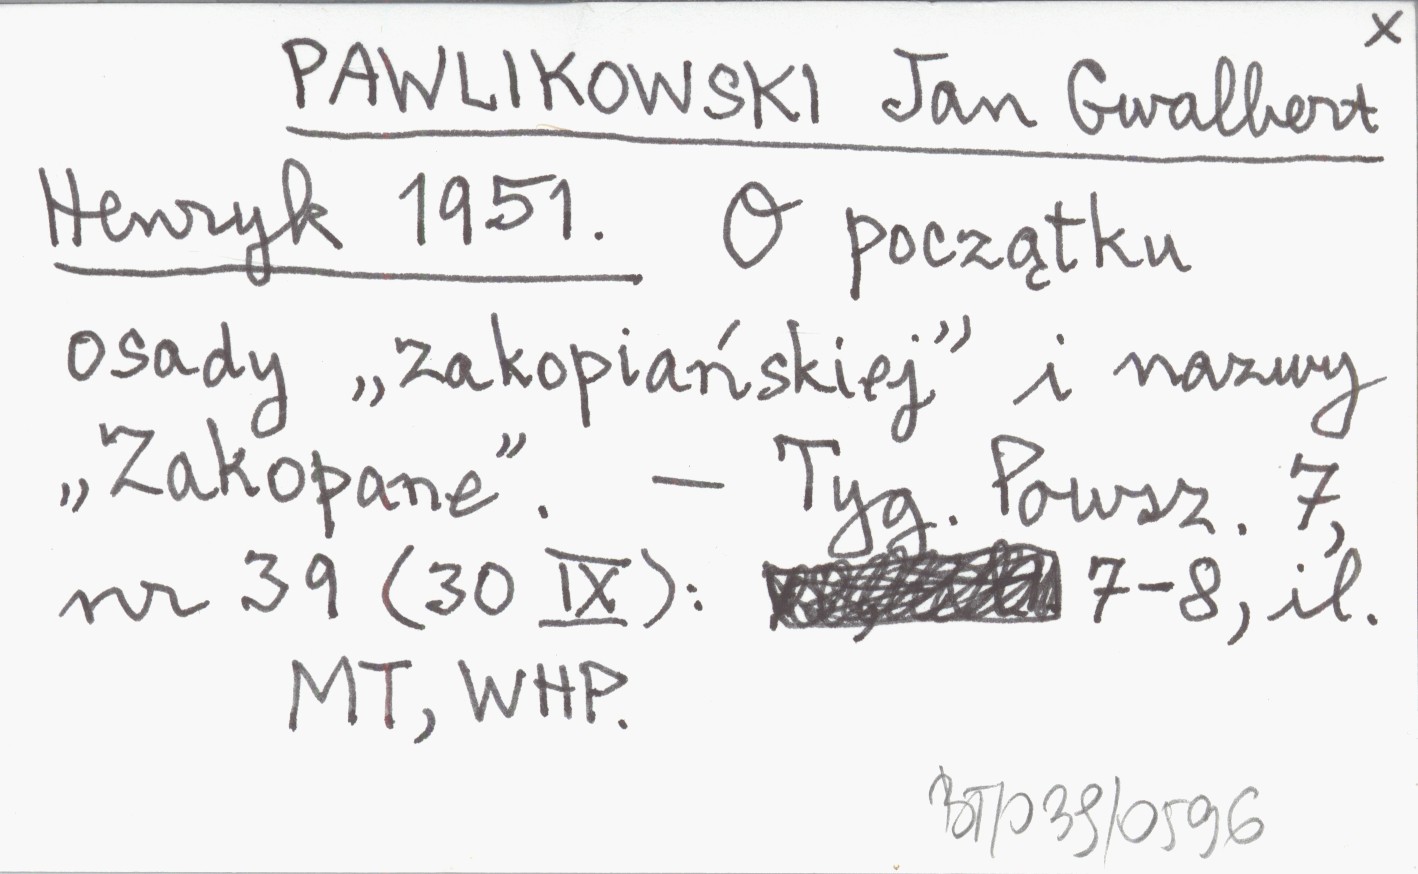 x
PAWLIKOWSKI Jan Gwalbert
Henryk 1951. O początku
osady „zakopiańskiej” i nazwy
„Zakopane”. — Tyg. Powsz. 7,
nr 39 (30 IX): 7-8, il.
MT, WHP.
BT/039/0596